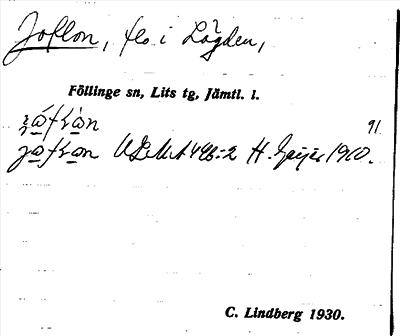 Joflon, flo i Lågden,
Föllinge sn, Lits tg, Jämtl. l.
91
U.L.M.A 496:2 H. Geijer 1910.
C. Lindberg 1930.